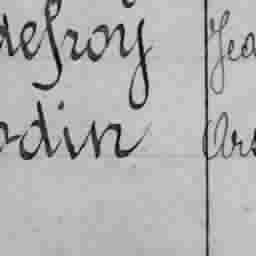 defroy Jea
odin Ars